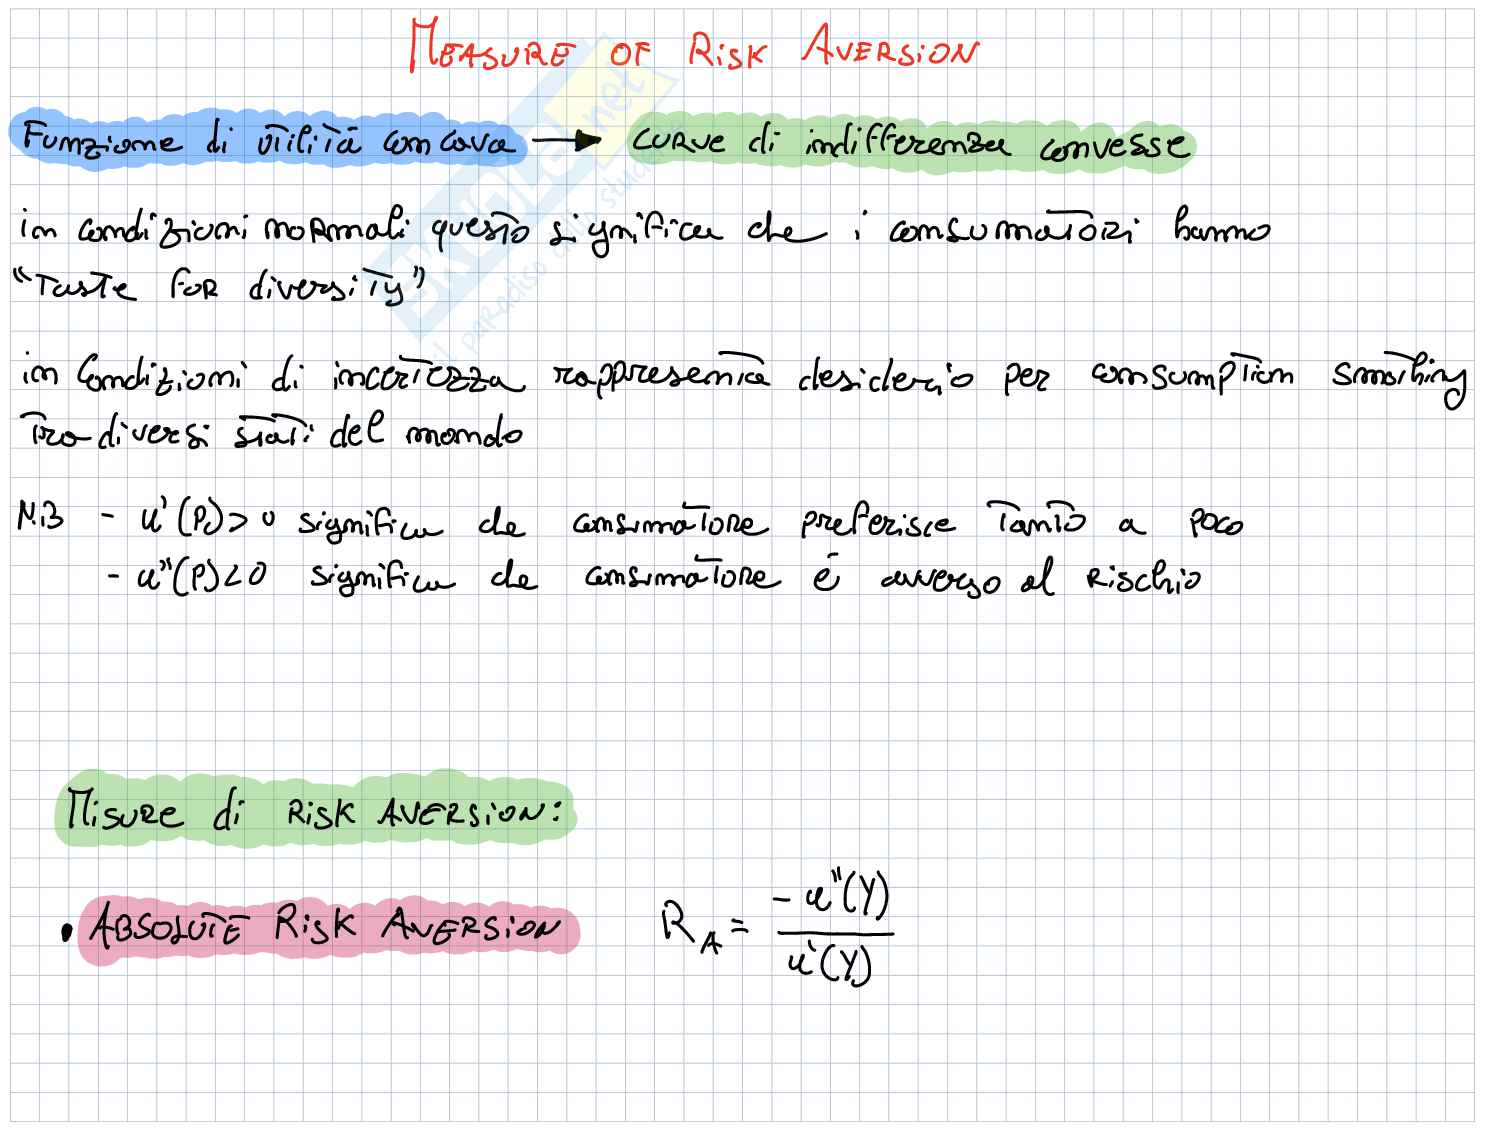 MEASURE OF RISK AVERSION
Funzione di utilità concava → CURVE di indifferenza convesse
in condizioni normali questo significa che i consumatori hanno
"Taste FOR diversity"
in Condizioni di incertezza rappresenta desiderio per consumption smothing
tra diversi stati del mondo
N.B - u'(P)>0 significa che consumatore preferisce tanto a poco
- u"(P)<0 significa che consumatore è avverso al Rischio
Misure di RISK AVERSION:
• ABSOLUTE RISK AVERSION R_A = -u"(Y) / u'(Y)
SKUOLA.net
il paradiso dello studente